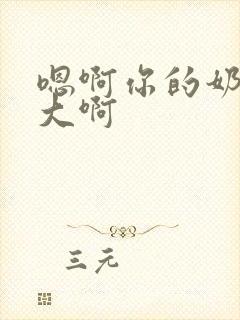 嗯啊你的奶
大啊
三元